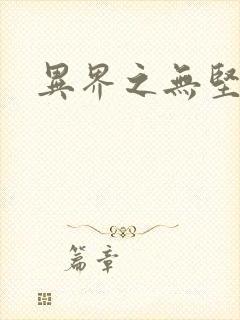 異界之無堅
篇章